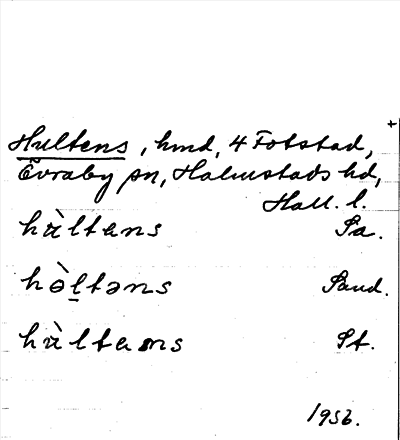 +
Hultens, hmd, 4 Fotstad,
Övraby sn, Halmstads hd,
Hall. l.
hùltens Sa.
hə̀l̠təns Sand.
hùltens St.
1956.